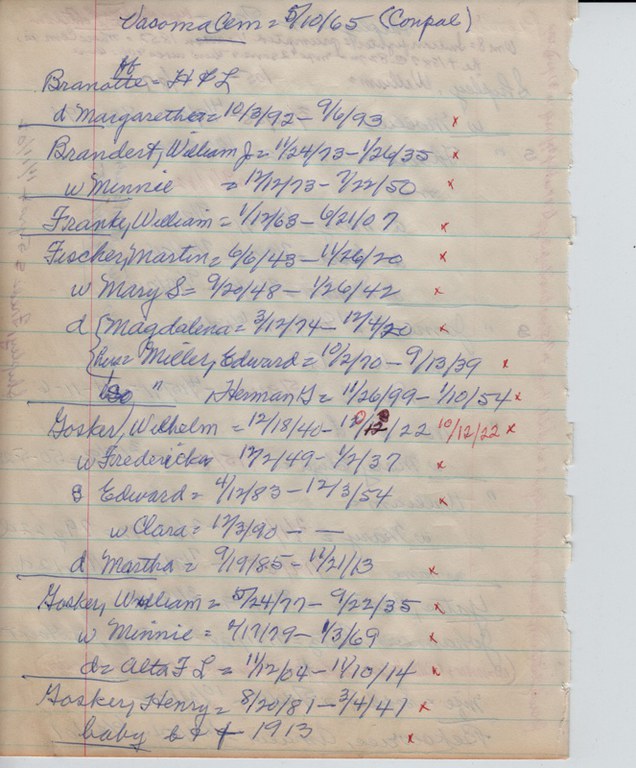 Vasoma Cem = 5/10/65 (Conpal)
Branott = H & L
d Margarethe = 10/3/92 - 9/6/93 x
Brandert, William J = 11/24/73 - 1/26/35 x
w Minnie = 12/12/73 - 7/22/50 x
Frank, William = 1/12/63 - 6/21/07 x
Fischer, Martin = 6/6/43 - 11/26/20 x
w Mary S = 9/20/48 - 1/26/42 x
d Magdalena = 3/12/74 - 12/4/20 x
Miller, Edward = 10/2/70 - 9/13/39 x
so " , Herman G = 11/26/99 - 1/10/54 x
Gosker, Wilhelm = 12/18/40 - 10/12/22 10/12/22 x
w Fredericka 12/2/49 - 1/2/37 x
s Edward = 4/12/83 - 12/3/54 x
w Clara = 12/3/90 - —
d Martha = 9/19/85 - 11/21/13 x
Gosker, William = 5/24/77 - 9/22/35 x
w Minnie = 2/17/79 - 1/3/69 x
d = Alta F L = 11/12/04 - 11/10/14 x
Gosker, Henry = 8/20/81 - 3/4/47 x
baby b & d 1913 x